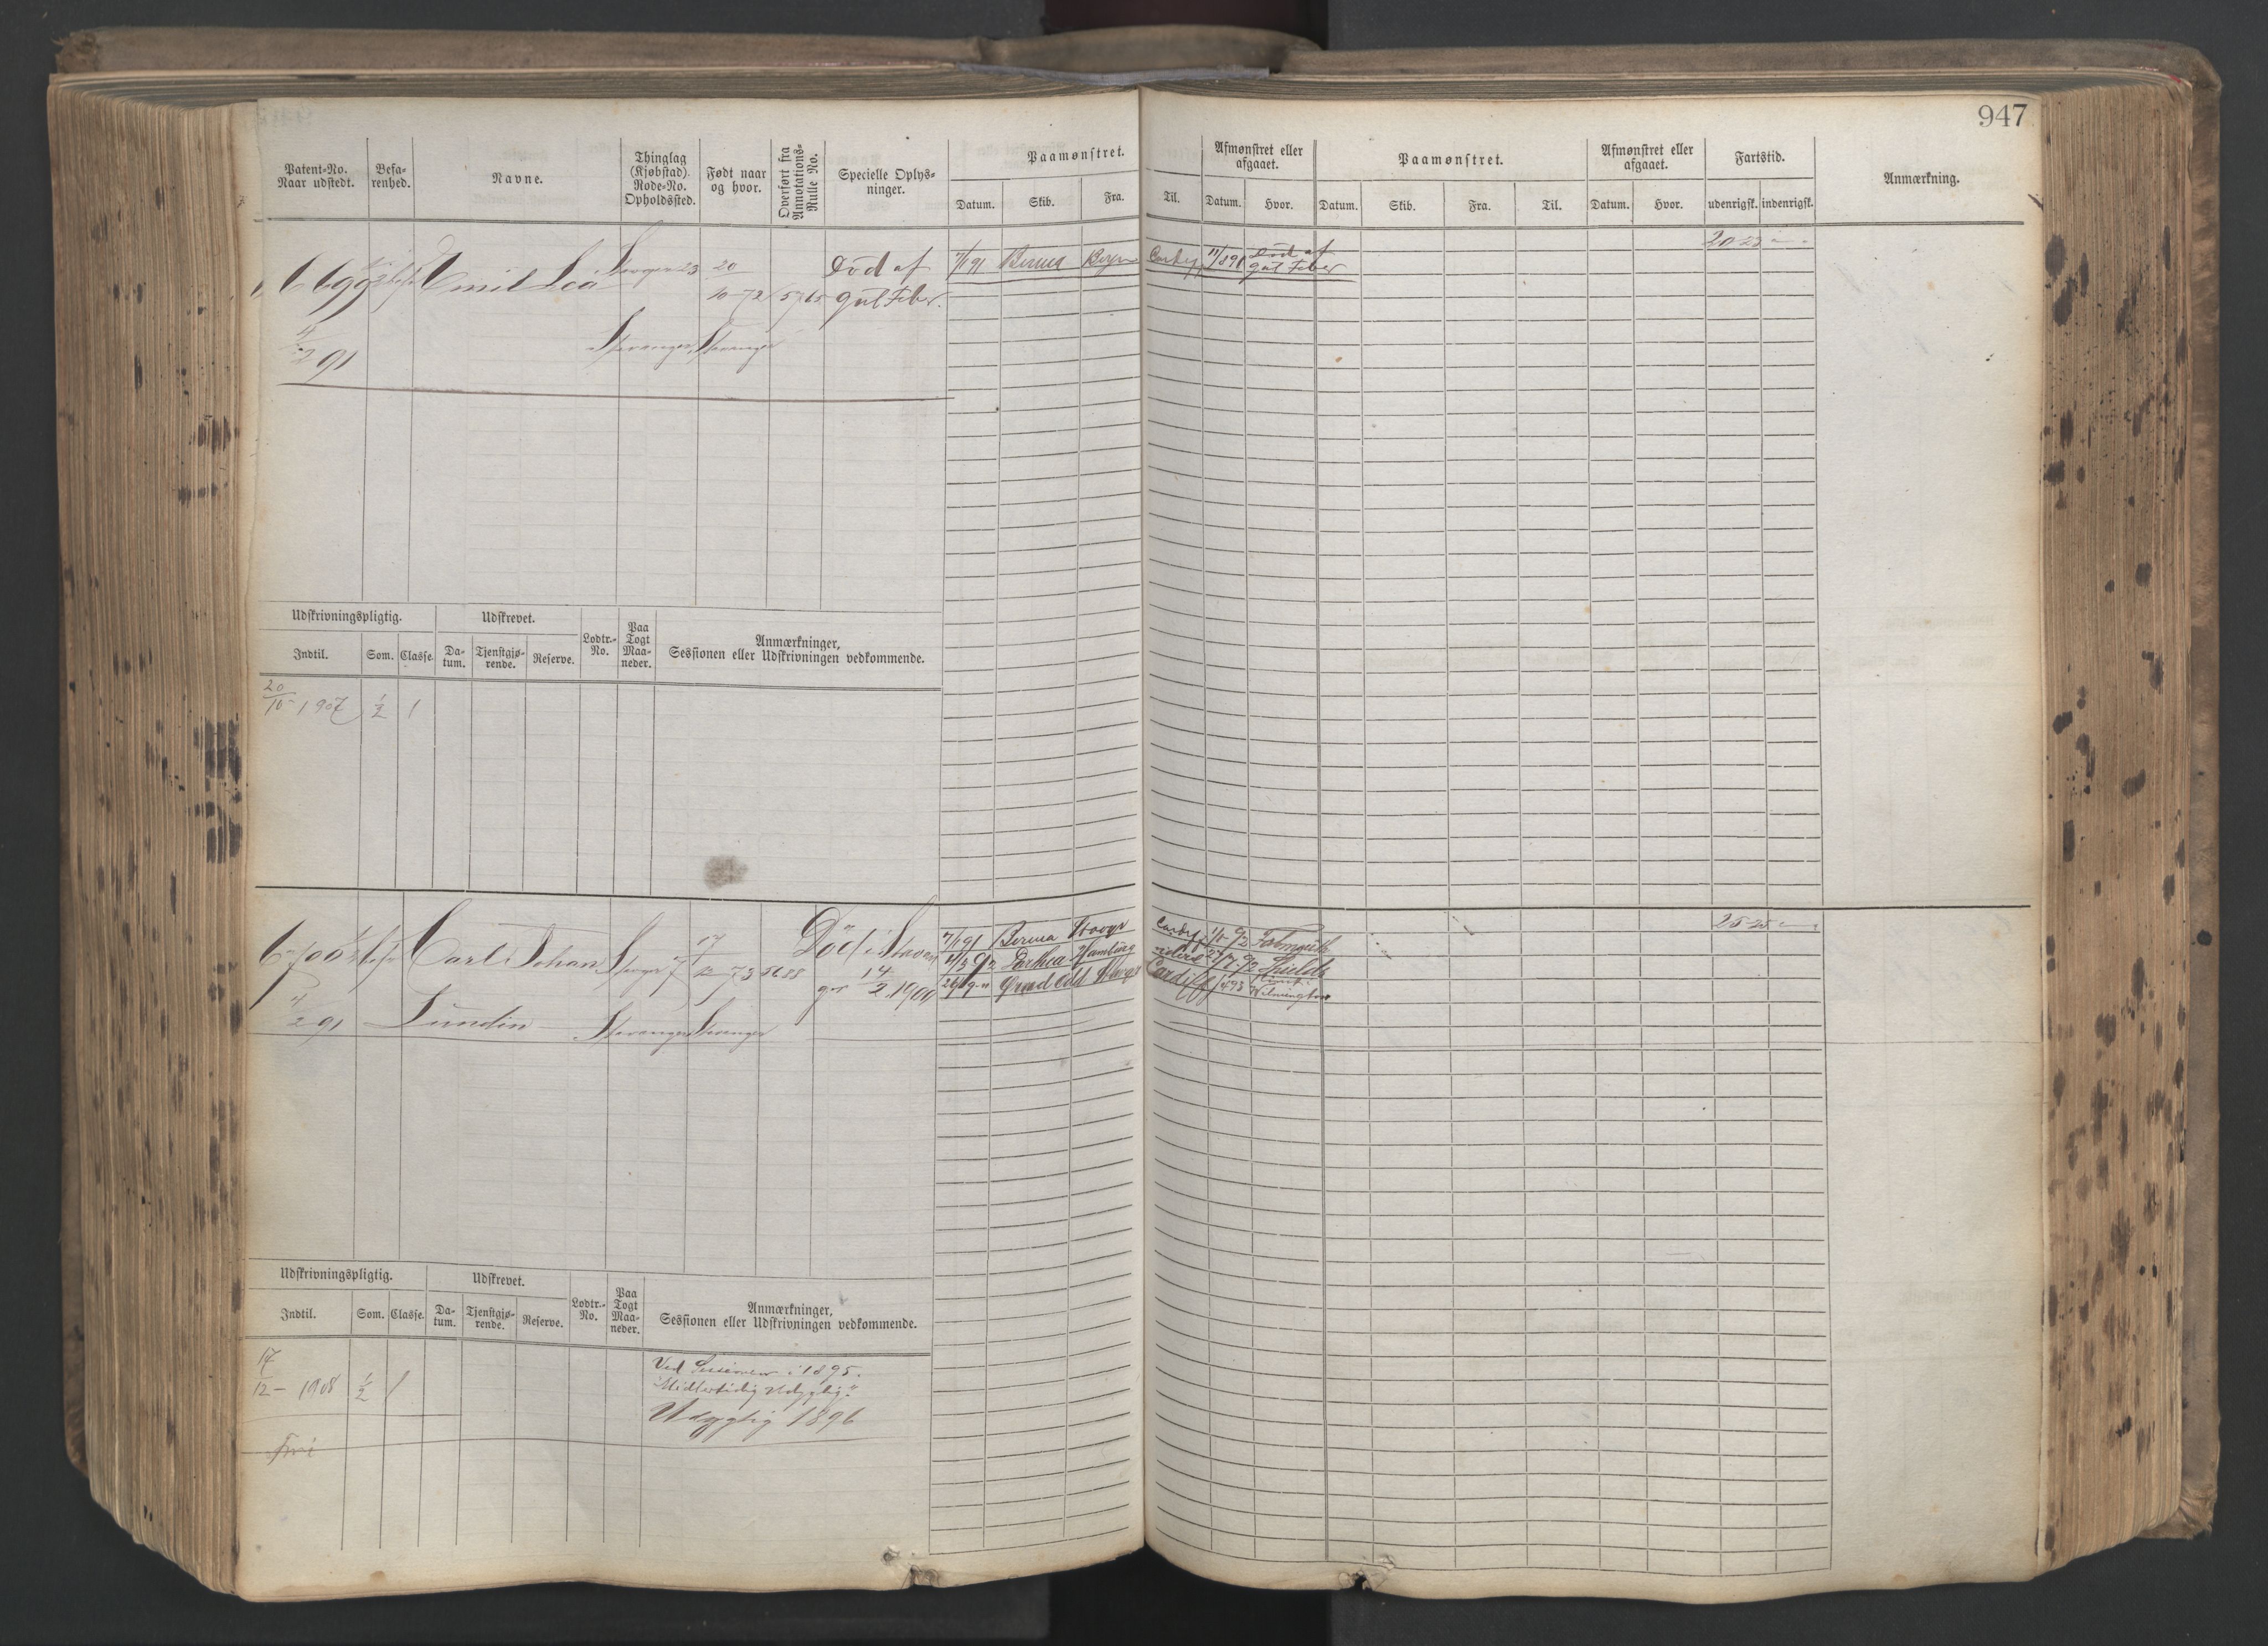 947
Patent-No. Naar udstedt.
Befarenhed.
Navne.
Thinglag (Kjøbstad). Rode-No. Opholdssted.
Født naar og hvor.
Overført fra Annotations-Rulle No.
Specielle Oplysninger.
Paamønstret.
Datum. Skib. Fra. Til.
Afmønstret eller afgaaet.
Datum. Hvor.
Paamønstret.
Datum. Skib. Fra. Til.
Afmønstret eller afgaaet.
Datum. Hvor.
Fartstid.
udenrigsk. indenrigsk.
Anmærkning.
6699 Emil Stavanger 23 20 Död af 7/1 91 Berma 11/8 91 Död af
10-72 5765 gul Feber. gul Feber
4/2 91 Stavanger Stavanger
20-23
Udskrivningspligtig. Udskrevet. Lodtr.-No. Paa Togt Maaneder. Anmærkninger, Sessionen eller Udskrivningen vedkommende.
Indtil. Som. Classe. Datum. Tjenstgjørende. Reserve.
20/10 - 1907 1/2 1
6700 Carl Johan 17 Död i Stavan 7/1 91 Berma Stavgr 1/1-92 Falmouth
12 73 5688 14 Hamburg 92 Shields
4/2 91 Lundin Stavanger Stavanger ger 2 1900 Cardiff 93 Wilmington
25-25
Udskrivningspligtig. Udskrevet. Lodtr.-No. Paa Togt Maaneder. Anmærkninger, Sessionen eller Udskrivningen vedkommende.
Indtil. Som. Classe. Datum. Tjenstgjørende. Reserve.
17 Ved Sessionen i 1895.
12 - 1908 1/2 1 "Midlertidig Udygtig."
Udygtig 1896
Fri